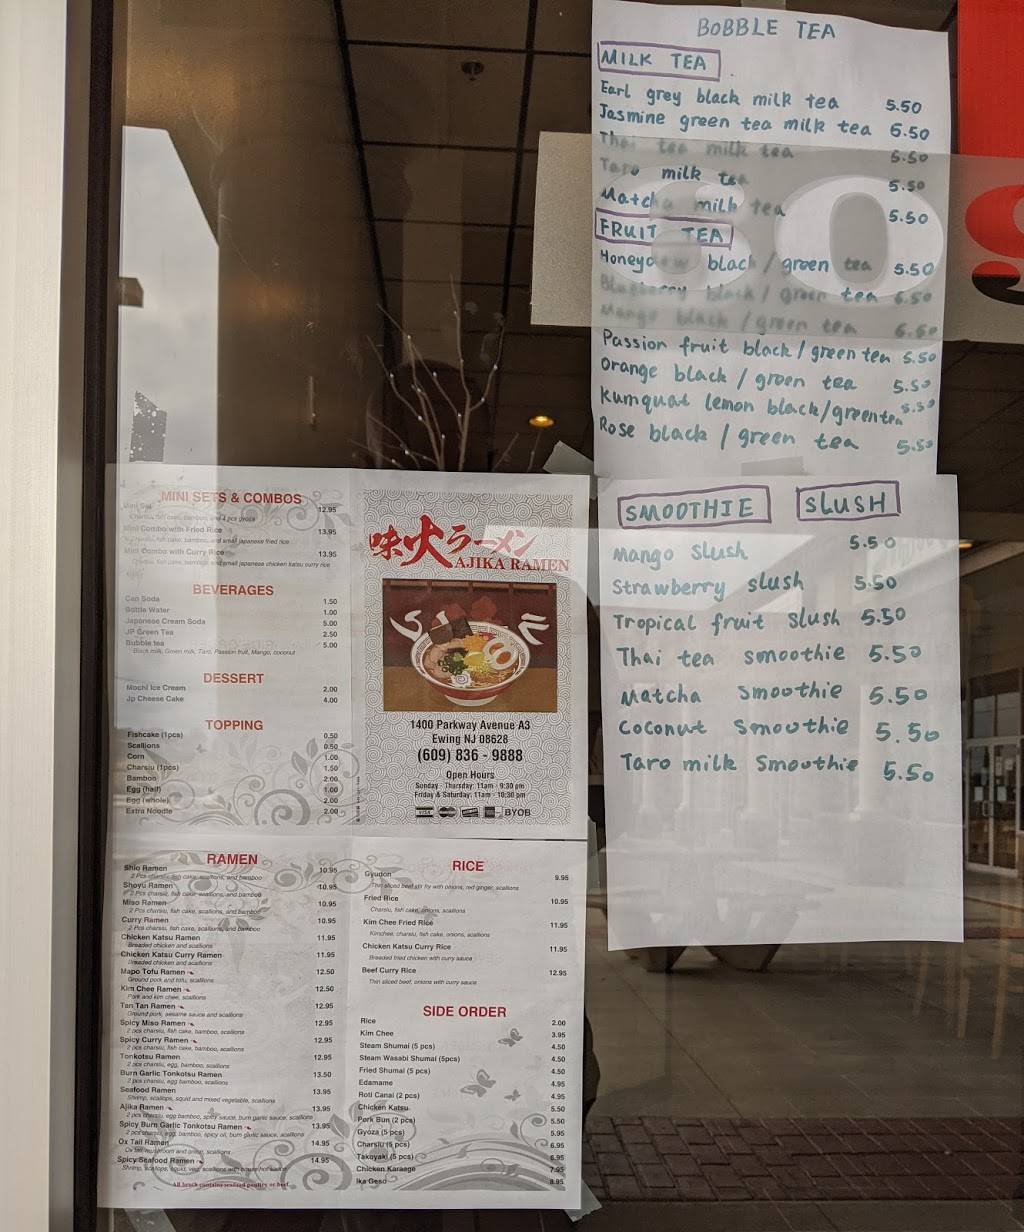 BOBBLE TEA
MILK TEA
Earl grey black milk tea 5.50
Jasmine green tea milk tea 5.50
Thai tea milk tea 5.50
Taro milk tea 5.50
Matcha milk tea 5.50
FRUIT TEA
Honeydew black / green tea 5.50
Blueberry black / green tea 5.50
Mango black / green tea 5.50
Passion fruit black / green tea 5.50
Orange black / green tea 5.50
Kumquat lemon black/green tea 5.50
Rose black / green tea 5.50
SMOOTHIE SLUSH
Mango slush 5.50
Strawberry slush 5.50
Tropical fruit slush 5.50
Thai tea smoothie 5.50
Matcha smoothie 5.50
Coconut smoothie 5.50
Taro milk smoothie 5.50
MINI SETS & COMBOS
Mini Set 12.95
Charsiu, fish cake, bamboo, and 4 pcs gyoza
Mini Combo with Fried Rice 13.95
Charsiu, fish cake, bamboo, and small japanese fried rice
Mini Combo with Curry Rice 13.95
Charsiu, fish cake, bamboo, and small japanese chicken katsu curry rice
BEVERAGES
Can Soda 1.50
Bottle Water 1.00
Japanese Cream Soda 5.00
JP Green Tea 2.50
Bubble tea 5.00
Black milk, Green milk, Taro, Passion fruit, Mango, coconut
DESSERT
Mochi Ice Cream 2.00
Jp Cheese Cake 4.00
TOPPING
Fishcake (1pcs) 0.50
Scallions 0.50
Corn 1.00
Charsiu (1pcs) 1.50
Bamboo 2.00
Egg (half) 1.00
Egg (whole) 2.00
Extra Noodle 2.00
味火ラーメン
AJIKA RAMEN
1400 Parkway Avenue A3
Ewing NJ 08628
(609) 836 - 9888
Open Hours
Sunday - Thursday: 11am - 9:30 pm
Friday & Saturday: 11am - 10:30 pm
VISA BYOB
RAMEN
Shio Ramen 10.95
2 Pcs charsiu, fish cake, scallions, and bamboo
Shoyu Ramen 10.95
2 Pcs charsiu, fish cake, scallions, and bamboo
Miso Ramen 10.95
2 Pcs charsiu, fish cake, scallions, and bamboo
Curry Ramen 10.95
2 Pcs charsiu, fish cake, scallions, and bamboo
Chicken Katsu Ramen 11.95
Breaded chicken and scallions
Chicken Katsu Curry Ramen 11.95
Breaded chicken and scallions
Mapo Tofu Ramen 12.50
Ground pork and tofu, scallions
Kim Chee Ramen 12.50
Pork and kim chee, scallions
Tan Tan Ramen 12.95
Ground pork, sesame sauce and scallions
Spicy Miso Ramen 12.95
2 pcs charsiu, fish cake, bamboo, scallions
Spicy Curry Ramen 12.95
2 pcs charsiu, fish cake, bamboo, scallions
Tonkotsu Ramen 12.95
2 pcs charsiu, egg, bamboo, scallions
Burn Garlic Tonkotsu Ramen 13.50
2 pcs charsiu, egg bamboo, scallions
Seafood Ramen 13.95
Shrimp, scallops, squid and mixed vegetable, scallions
Ajika Ramen 13.95
2 pcs charsiu, egg bamboo, spicy sauce, burn garlic sauce, scallions
Spicy Burn Garlic Tonkotsu Ramen 13.95
2 pcs charsiu, egg, bamboo, spicy oil, burn garlic sauce, scallions
Ox Tail Ramen 14.95
Ox tail, mushroom and onion, scallions
Spicy Seafood Ramen 14.95
Shrimp, scallops, squid, veg, scallions with house hot sauce
All broth contains seafood poultry or beef
RICE
Gyudon 9.95
Thin sliced beef stir fry with onions, red ginger, scallions
Fried Rice 10.95
Charsiu, fish cake, onions, scallions
Kim Chee Fried Rice 11.95
Kimchee, charsiu, fish cake, onions, scallions
Chicken Katsu Curry Rice 11.95
Breaded fried chicken with curry sauce
Beef Curry Rice 12.95
Thin sliced beef, onions with curry sauce
SIDE ORDER
Rice 2.00
Kim Chee 3.95
Steam Shumai (5 pcs) 4.50
Steam Wasabi Shumai (5pcs) 4.50
Fried Shumai (5 pcs) 4.50
Edamame 4.95
Roti Canai (2 pcs) 4.95
Chicken Katsu 5.50
Pork Bun (2 pcs) 5.50
Gyoza (5 pcs) 5.95
Charsiu (5 pcs) 6.95
Takoyaki (5 pcs) 6.95
Chicken Karaage 7.95
Ika Geso 8.95